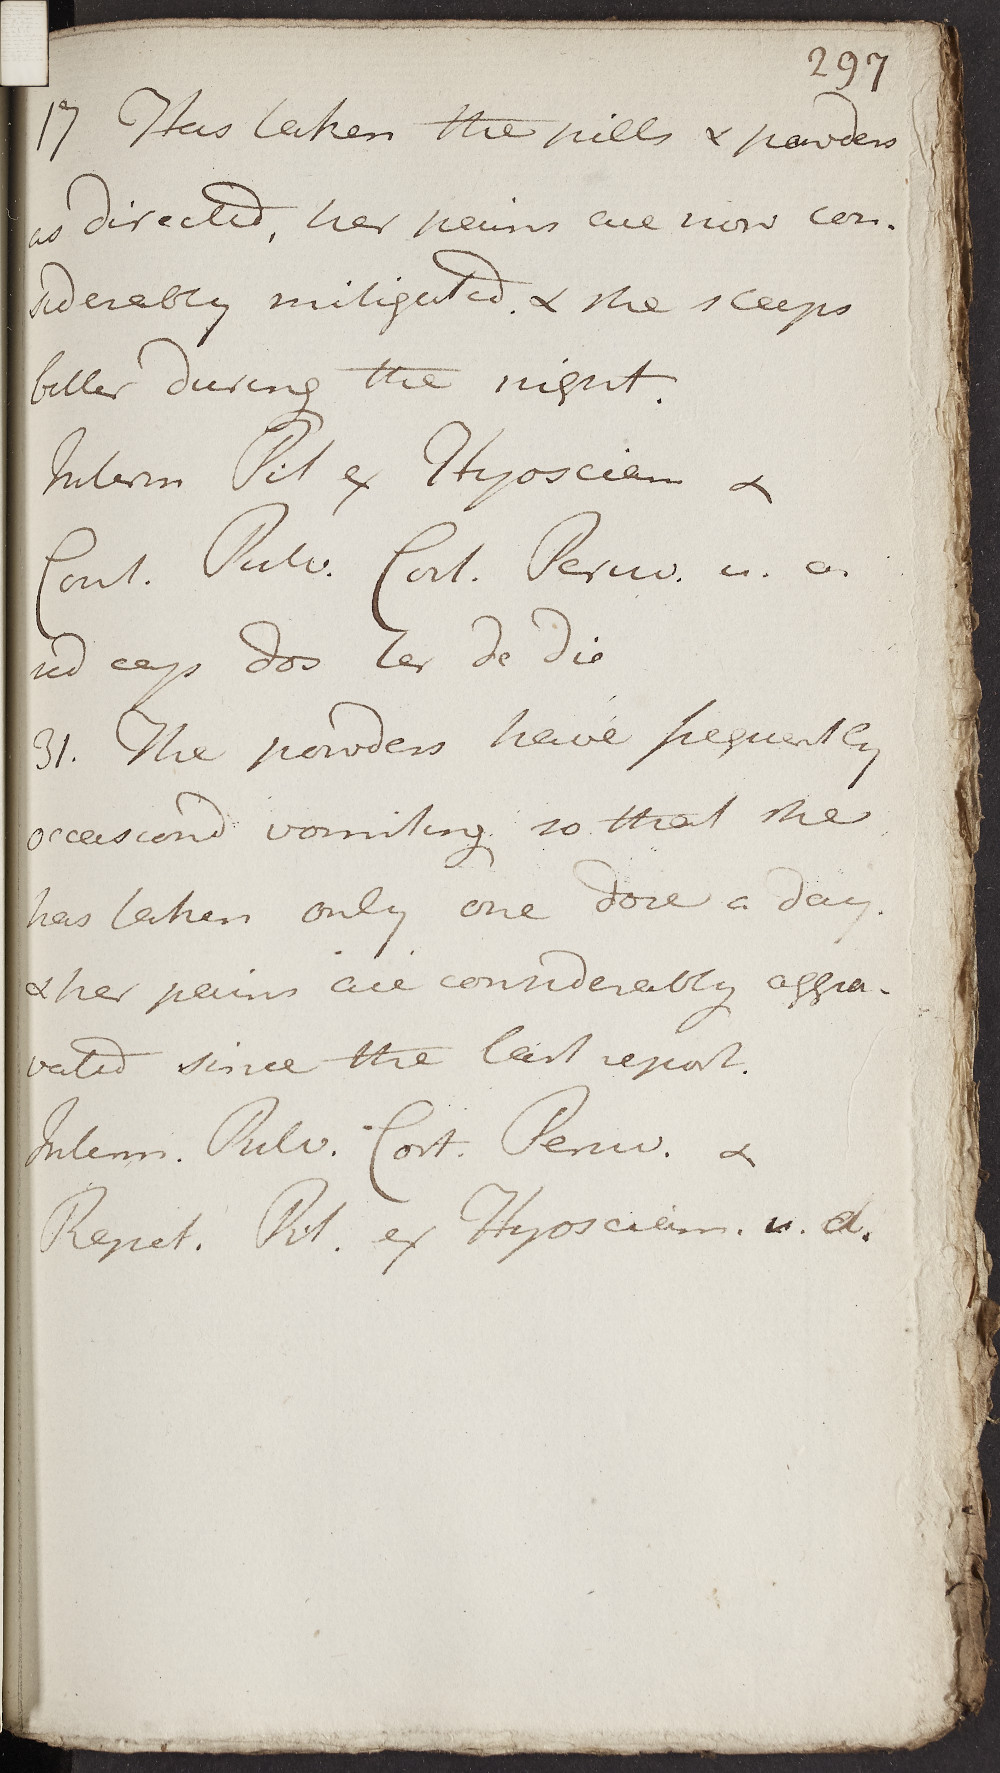 297
17 Has taken the pills & powders
as directed, her pains are now con-
siderably mitigated. & she sleeps
better during the night.
Interm Pil ex Hyosciam &
Cont. Pulv. Cort. Peruv. u. a.
sed cap dos ter de die
31. The powders have frequently
occasiond vomiting so that she
has taken only one dose a day.
& her pains are considerably aggra-
vated since the last report.
Interm. Pulv. Cort. Peruv. &
Repet. Pil. ex Hyosciam. u. a.